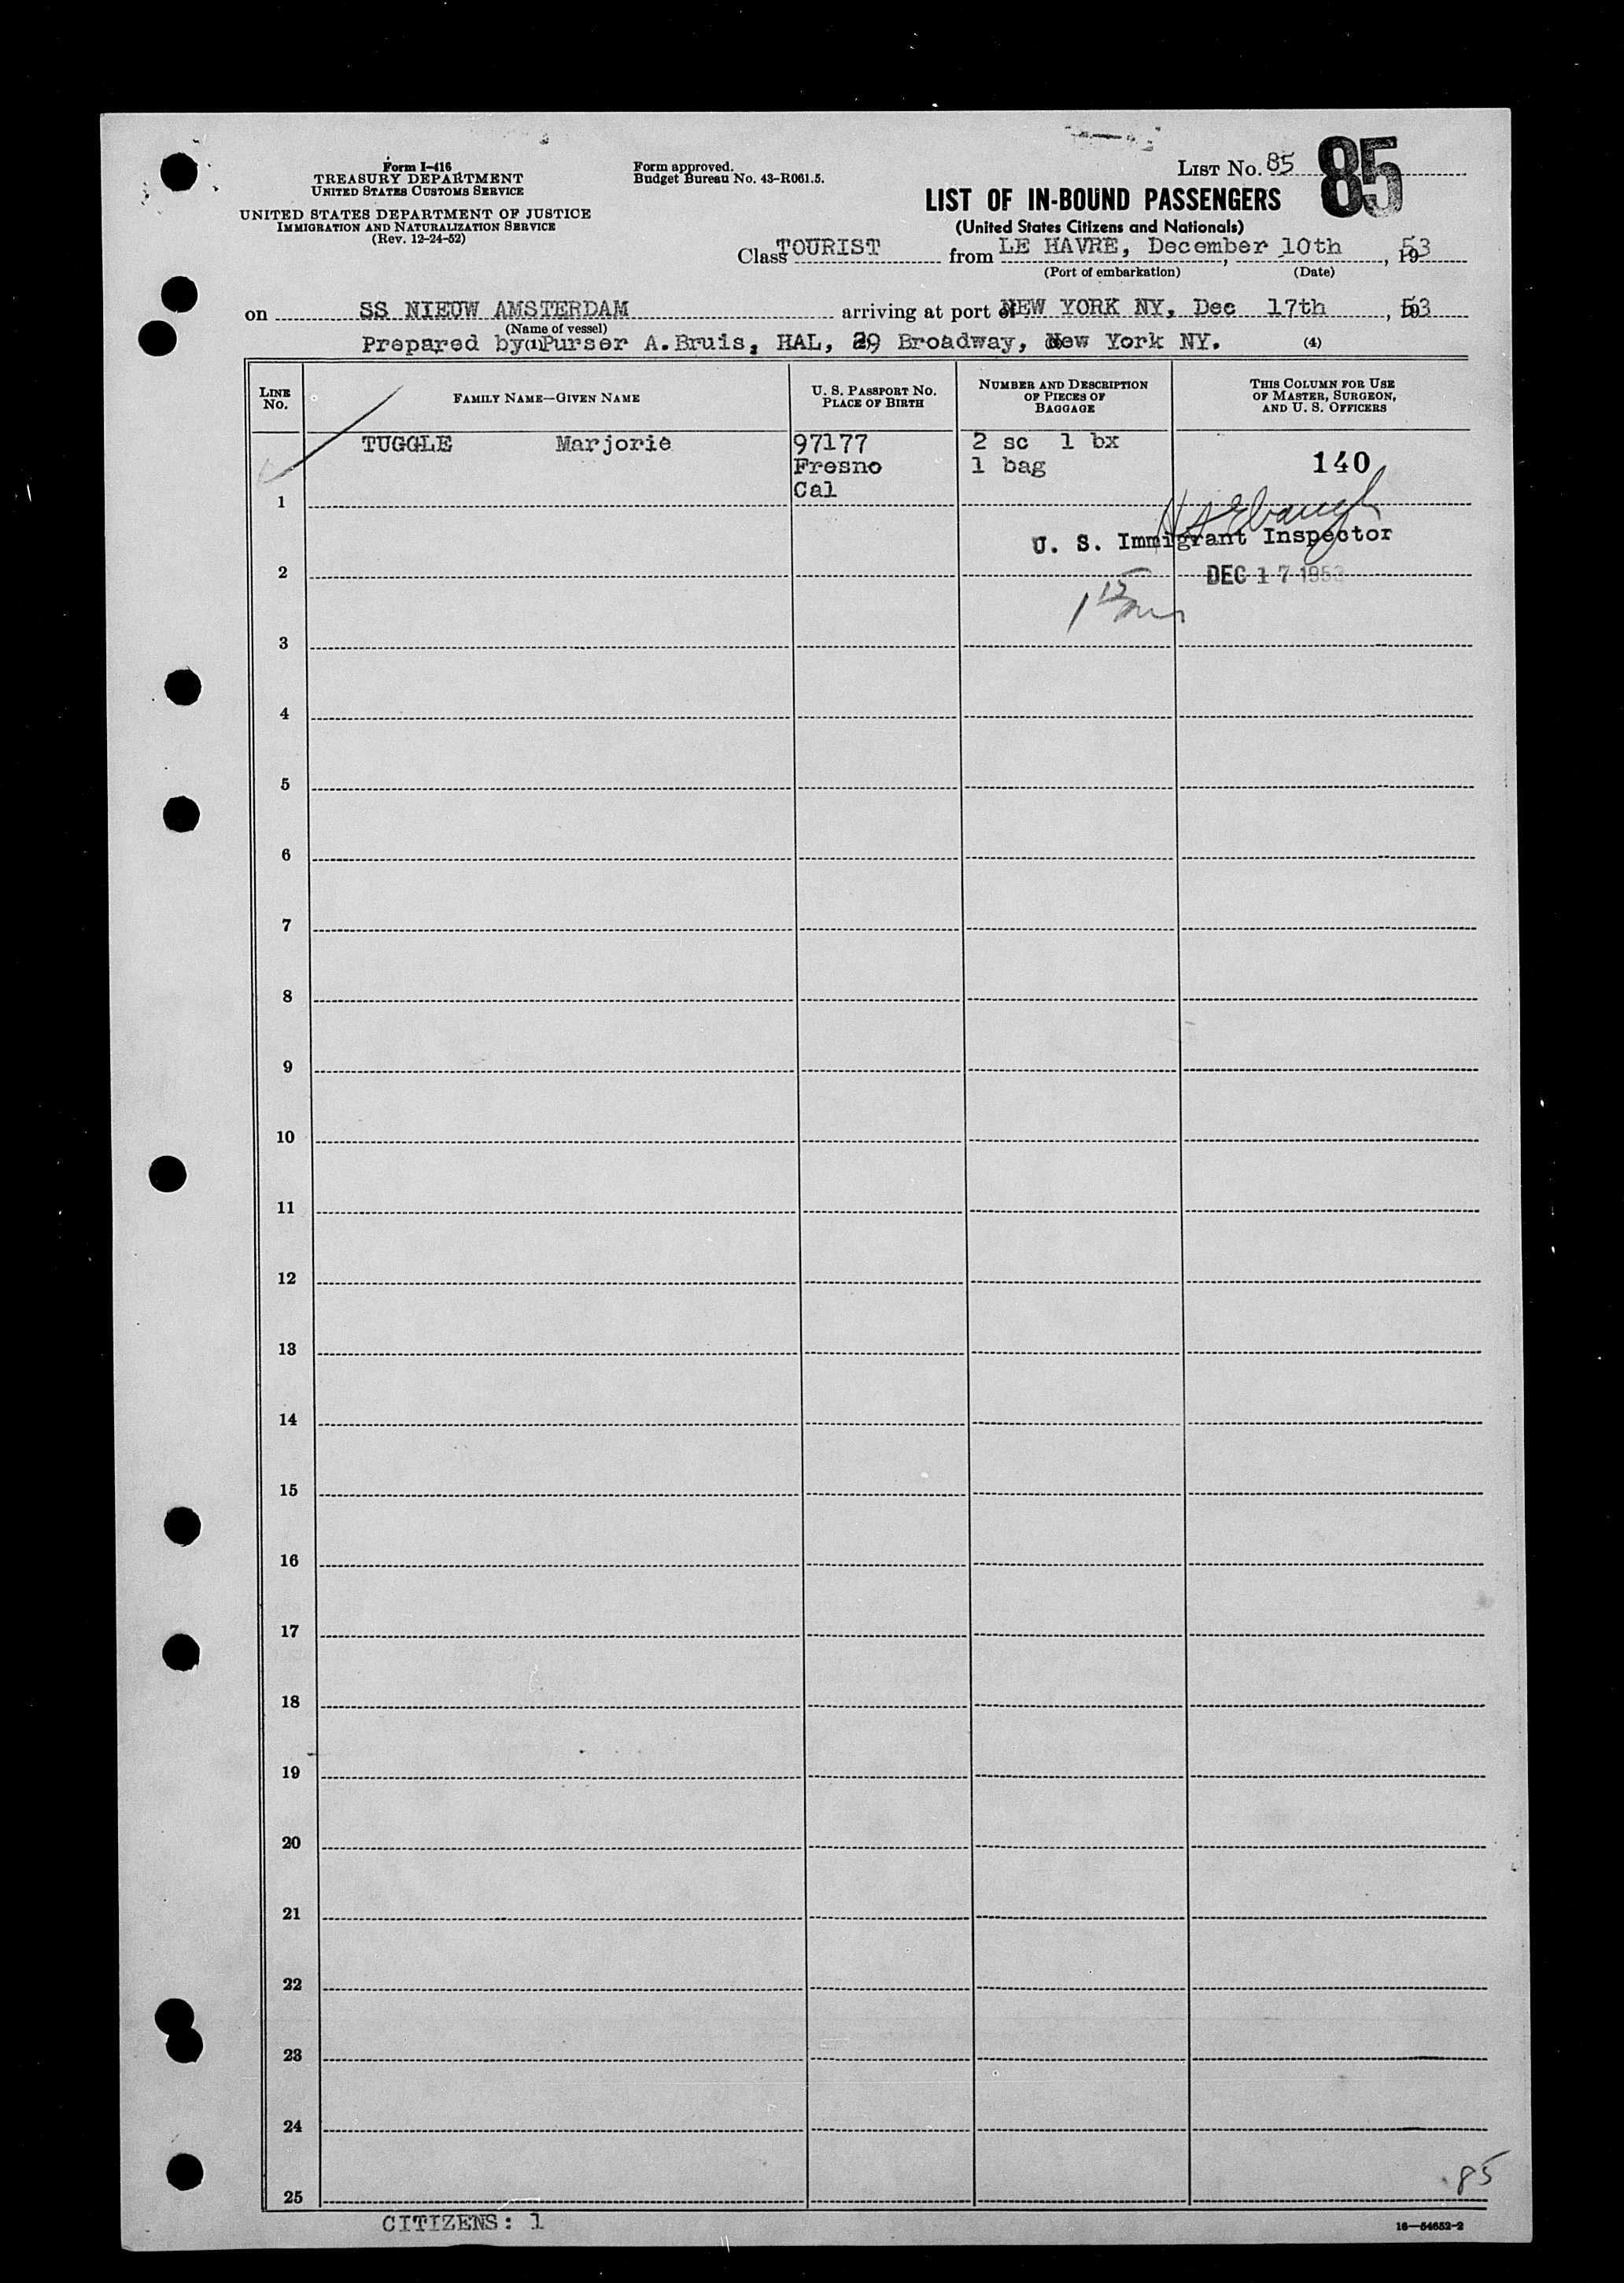 Form I-416
TREASURY DEPARTMENT
UNITED STATES CUSTOMS SERVICE
UNITED STATES DEPARTMENT OF JUSTICE
IMMIGRATION AND NATURALIZATION SERVICE
(Rev. 12-24-52)
Form approved.
Budget Bureau No. 43-R061.5.
LIST No. 85
85
LIST OF IN-BOUND PASSENGERS
(United States Citizens and Nationals)
Class TOURIST from LE HAVRE, December 10th, 1953
(Port of embarkation) (Date)
on SS NIEUW AMSTERDAM arriving at port of NEW YORK NY, Dec 17th, 1953
(Name of vessel)
Prepared by Purser A.Bruis, HAL, 29 Broadway, New York NY.
(1) (4)
LINE No. FAMILY NAME—GIVEN NAME U. S. PASSPORT No. PLACE OF BIRTH NUMBER AND DESCRIPTION OF PIECES OF BAGGAGE THIS COLUMN FOR USE OF MASTER, SURGEON, AND U. S. OFFICERS
TUGGLE Marjorie 97177 2 sc 1 bx
Fresno 1 bag 140
Cal
1
U. S. Immigrant Inspector
2 DEC 17 1953
3
4
5
6
7
8
9
10
11
12
13
14
15
16
17
18
19
20
21
22
23
24
85
25
CITIZENS: 1
16—54652-2